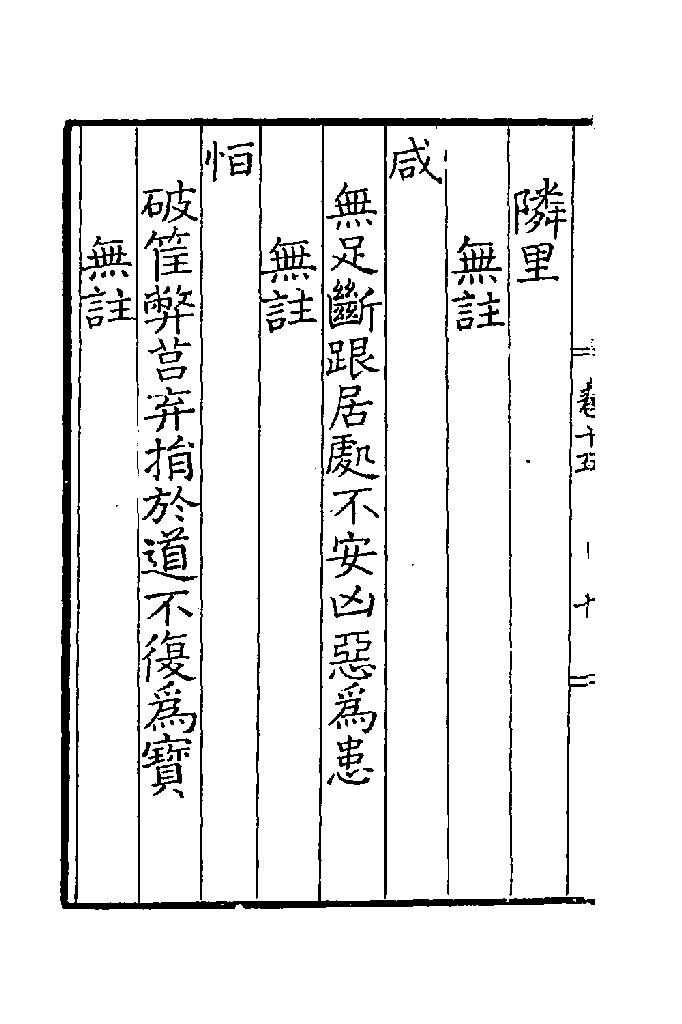 隣里
無註
咸
無足斷跟居處不安凶惡為患
無註
恒
破筐弊莒弃捐於道不復為寶
無註
卷十五
十